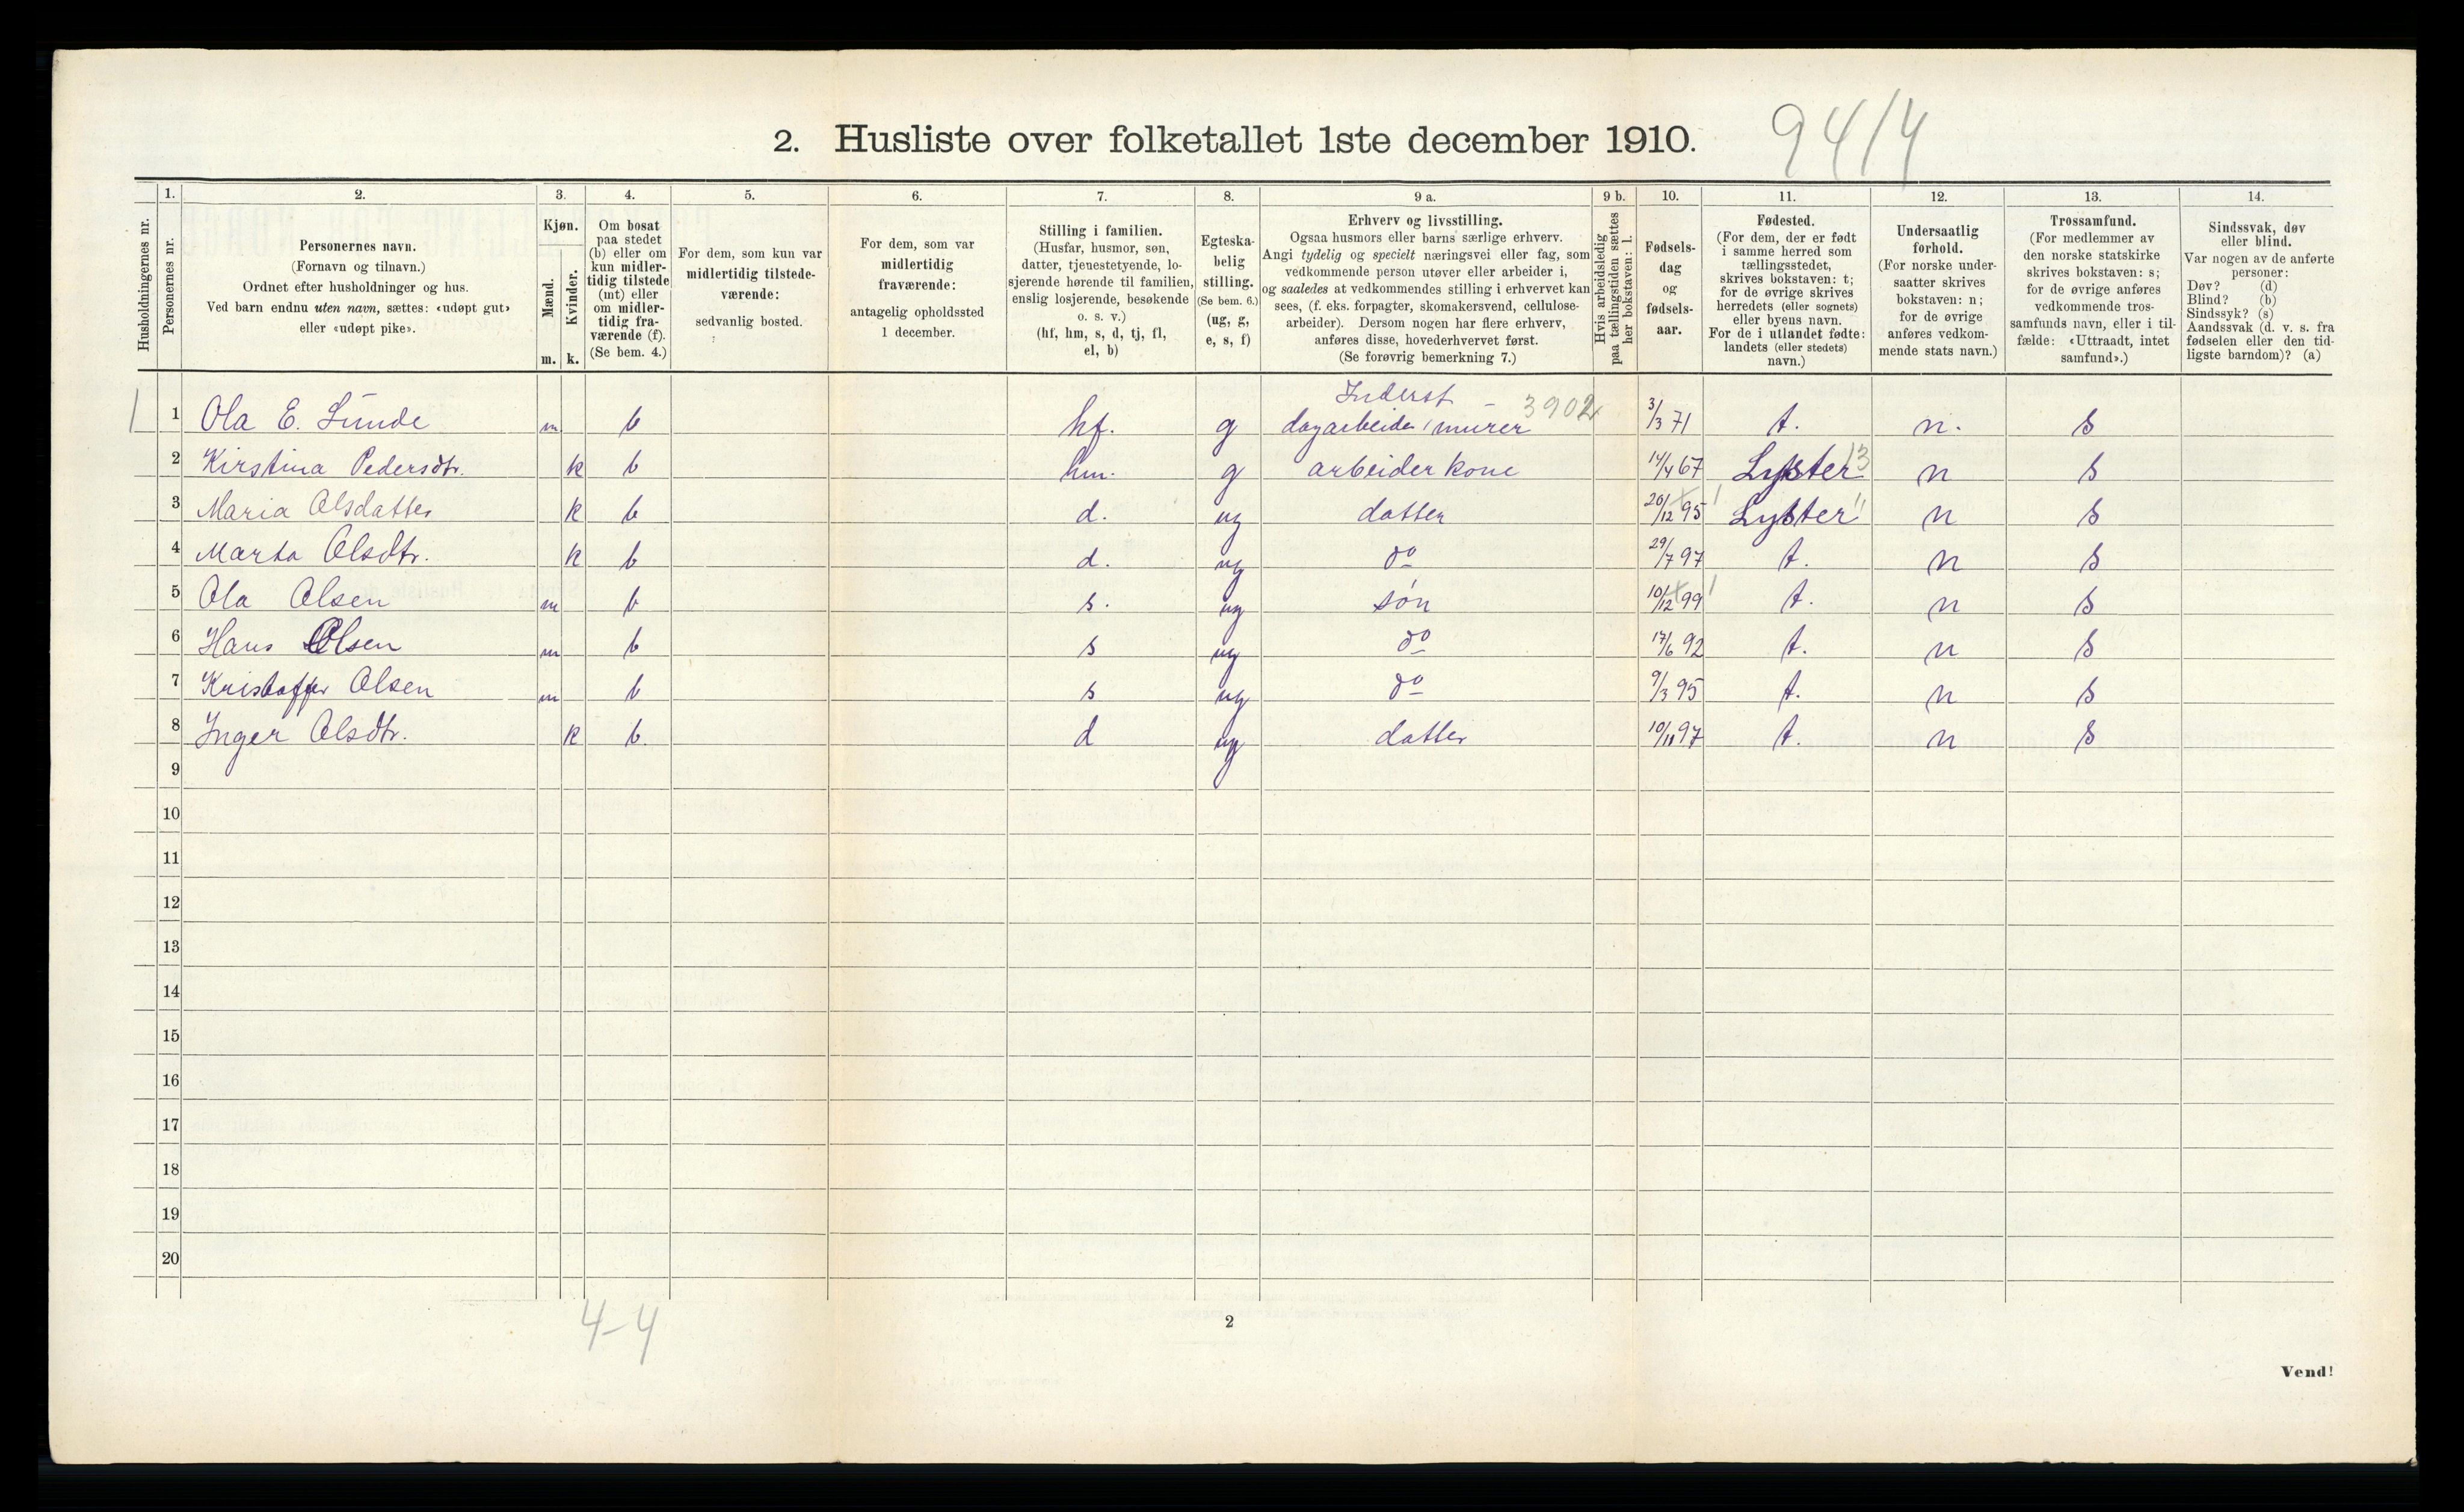 2. Husliste over folketallet 1ste december 1910.
94/4
Husholdningernes nr.
1.
Personernes nr.
2.
Personernes navn.
(Fornavn og tilnavn.)
Ordnet efter husholdninger og hus.
Ved barn endnu uten navn, sættes: «udøpt gut»
eller «udøpt pike».
3.
Kjøn.
Mænd.
Kvinder.
m. k.
4.
Om bosat
paa stedet
(b) eller om
kun midler-
tidig tilstede
(mt) eller
om midler-
tidig fra-
værende (f).
(Se bem. 4.)
5.
For dem, som kun var
midlertidig tilstede-
værende:
sedvanlig bosted.
6.
For dem, som var
midlertidig
fraværende:
antagelig opholdssted
1 december.
7.
Stilling i familien.
(Husfar, husmor, søn,
datter, tjenestetyende, lo-
sjerende hørende til familien,
enslig losjerende, besøkende
o. s. v.)
(hf, hm, s, d, tj, fl,
el, b)
8.
Egteska-
belig
stilling.
(Se bem. 6.)
(ug, g,
e, s, f)
9 a.
Erhverv og livsstilling.
Ogsaa husmors eller barns særlige erhverv.
Angi tydelig og specielt næringsvei eller fag, som
vedkommende person utøver eller arbeider i,
og saaledes at vedkommendes stilling i erhvervet kan
sees, (f. eks. forpagter, skomakersvend, cellulose-
arbeider). Dersom nogen har flere erhverv,
anføres disse, hovederhvervet først.
(Se forøvrig bemerkning 7.)
9 b.
Hvis arbeidsledig
paa tællingstiden sættes
her bokstaven: l.
10.
Fødsels-
dag
og
fødsels-
aar.
11.
Fødested.
(For dem, der er født
i samme herred som
tællingsstedet,
skrives bokstaven: t;
for de øvrige skrives
herredets (eller sognets)
eller byens navn.
For de i utlandet fødte:
landets (eller stedets)
navn.)
12.
Undersaatlig
forhold.
(For norske under-
saatter skrives
bokstaven: n;
for de øvrige
anføres vedkom-
mende stats navn.)
13.
Trossamfund.
(For medlemmer av
den norske statskirke
skrives bokstaven: s;
for de øvrige anføres
vedkommende tros-
samfunds navn, eller i til-
fælde: «Uttraadt, intet
samfund».)
14.
Sindssvak, døv
eller blind.
Var nogen av de anførte
personer:
Døv? (d)
Blind? (b)
Sindssyk? (s)
Aandssvak (d. v. s. fra
fødselen eller den tid-
ligste barndom)? (a)
Inderst – 3902
1 1 Ola E. Lunde m b hf. g dagarbeider / murer 3/3 71 t. n. s
2 Kirstina Pedersdtr. k b hm. g arbeider kone 14/4 67 Lyster 13 n s
3 Maria Olsdatter k b d. ug datter 20/12 95 Lyster n s
4 Marta Olsdtr. k b d. ug do 29/7 97 t. n s
5 Ola Olsen m b s. ug søn 10/12 99 t. n s
6 Hans Olsen m b s ug do 17/6 92 t. n s
7 Kristoffer Olsen m b s ug do 9/3 95 t. n s
8 Inger Olsdtr. k b. d ug datter 10/11 97 t. n s
9
10
11
12
13
14
15
16
17
18
19
20
4-4
2
Vend!